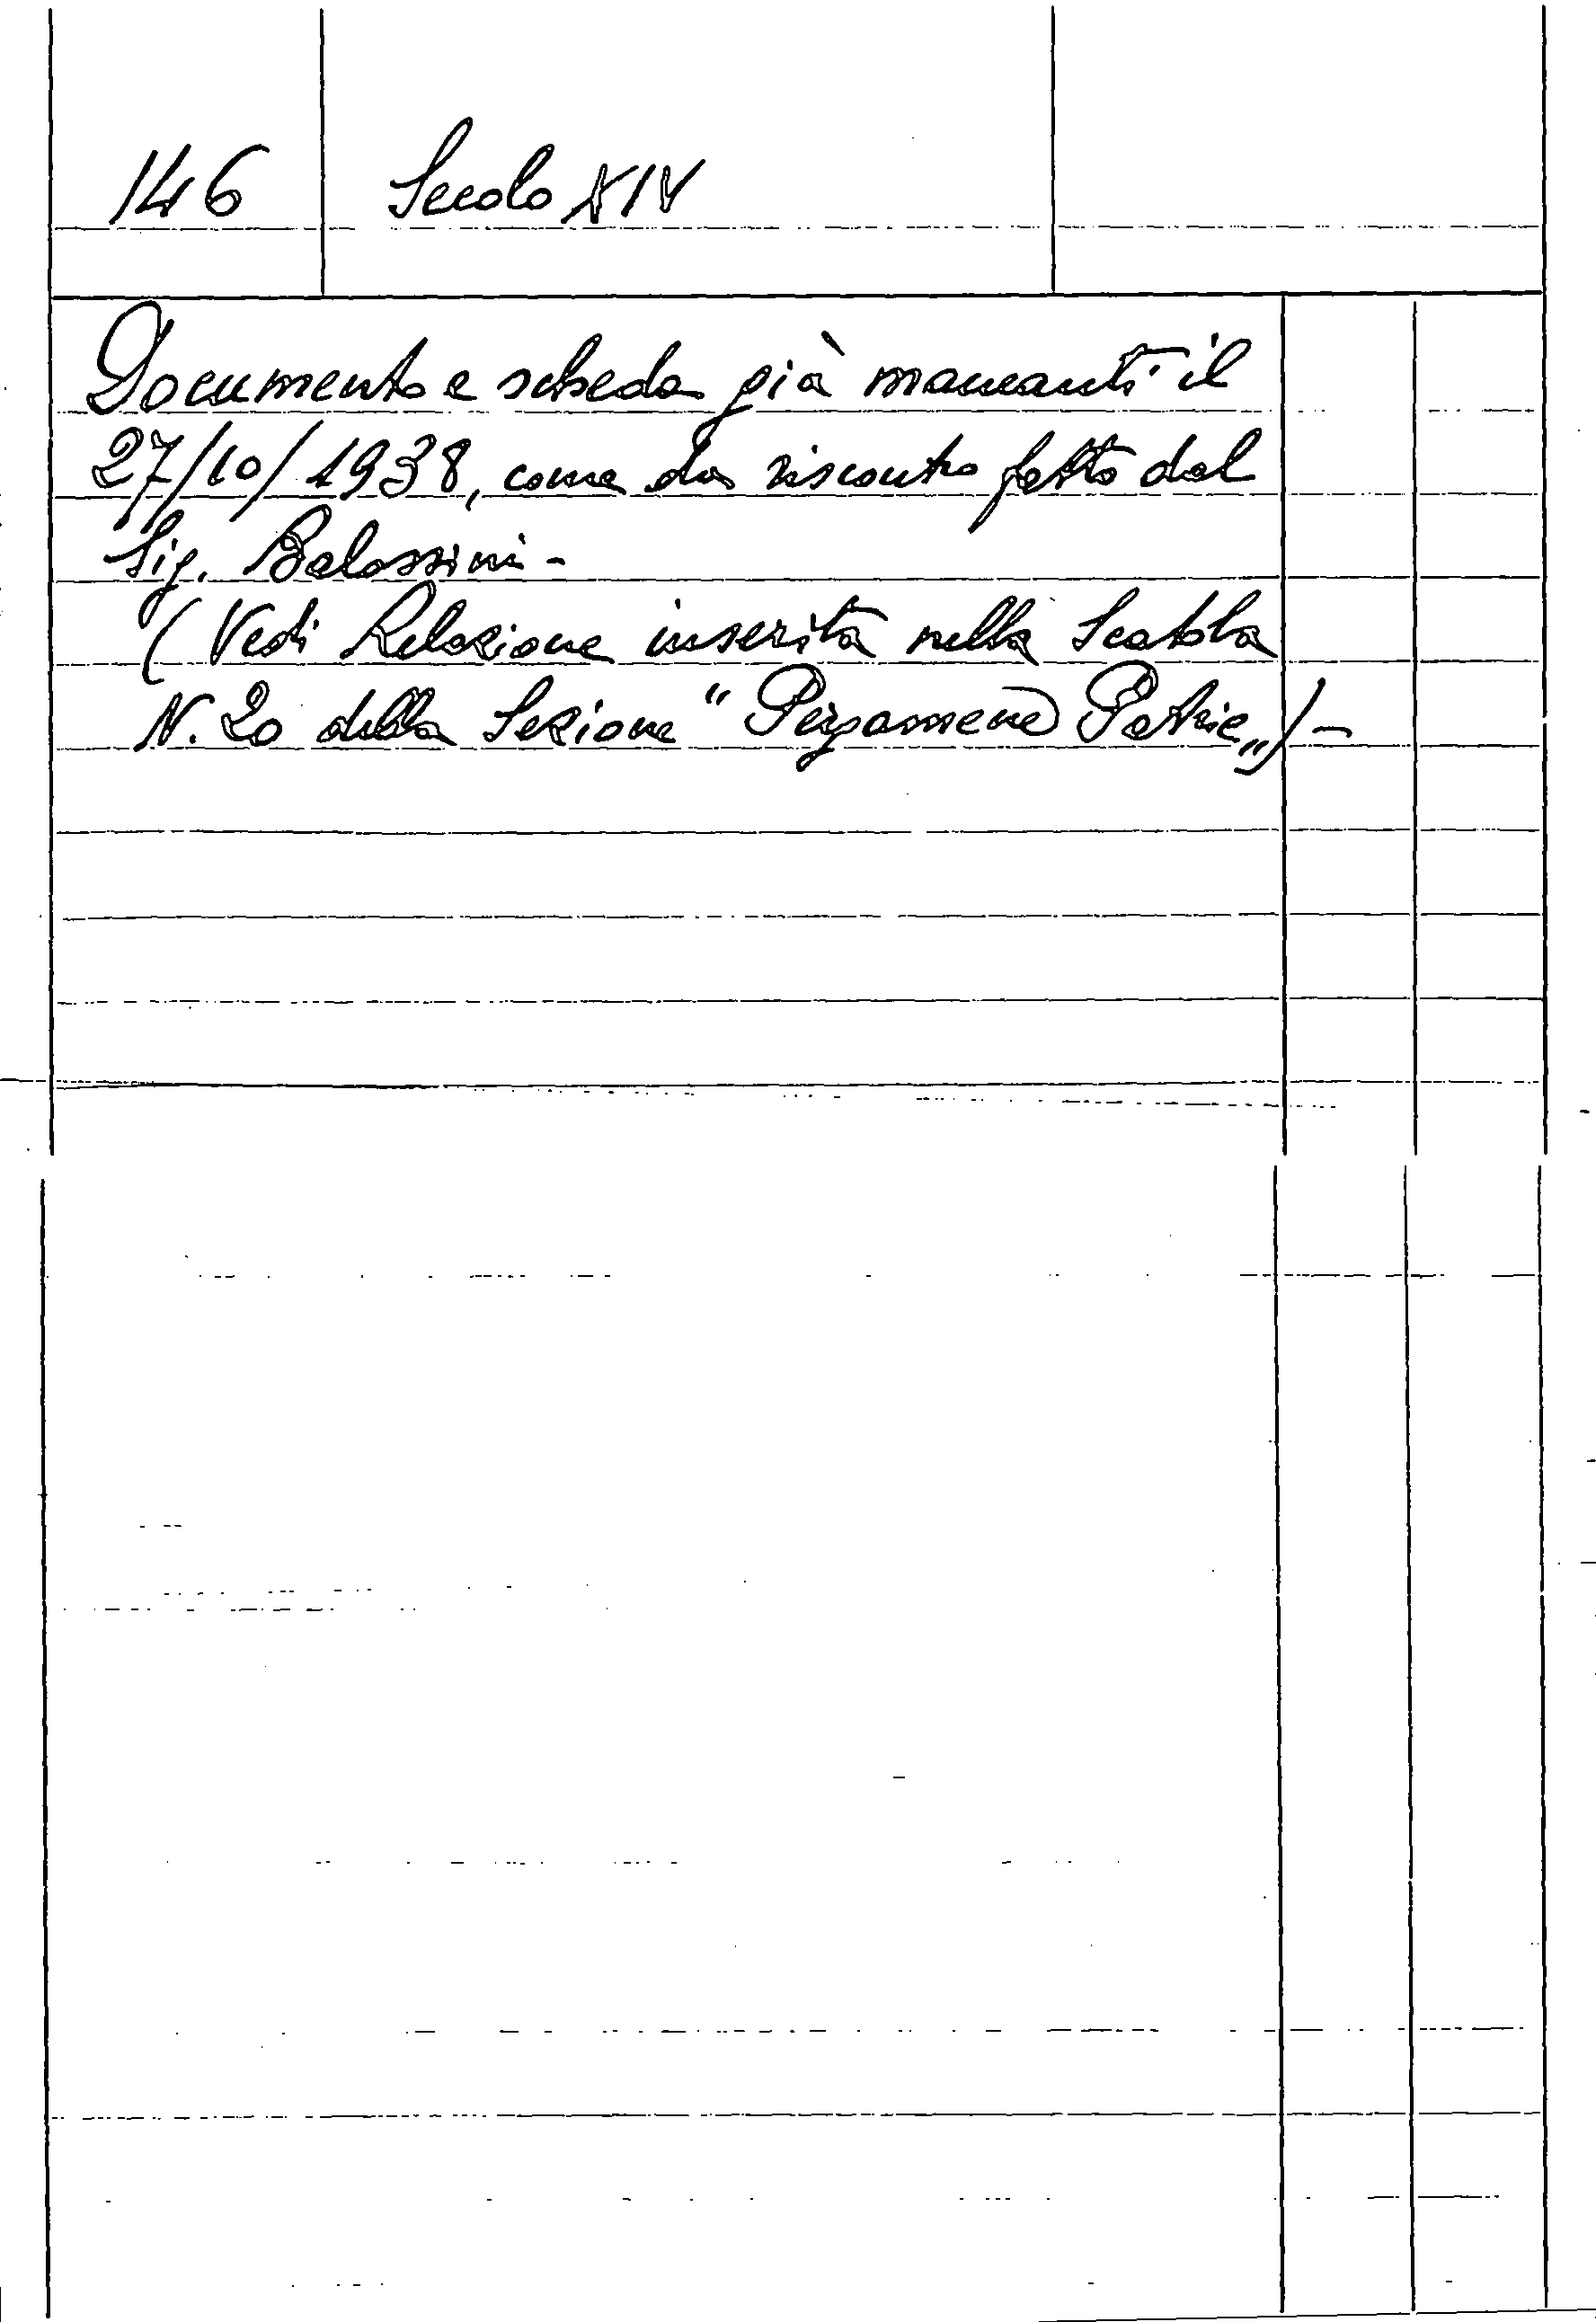 146 Secolo XIV
Documento e scheda già mancanti il
27/10/1938, come da riscontro fatto dal
Sig. Balossini -
( Vedi Relazione inserita nella Scatola
N. 20 della Sezione " Pergamene Patrie „ ) -